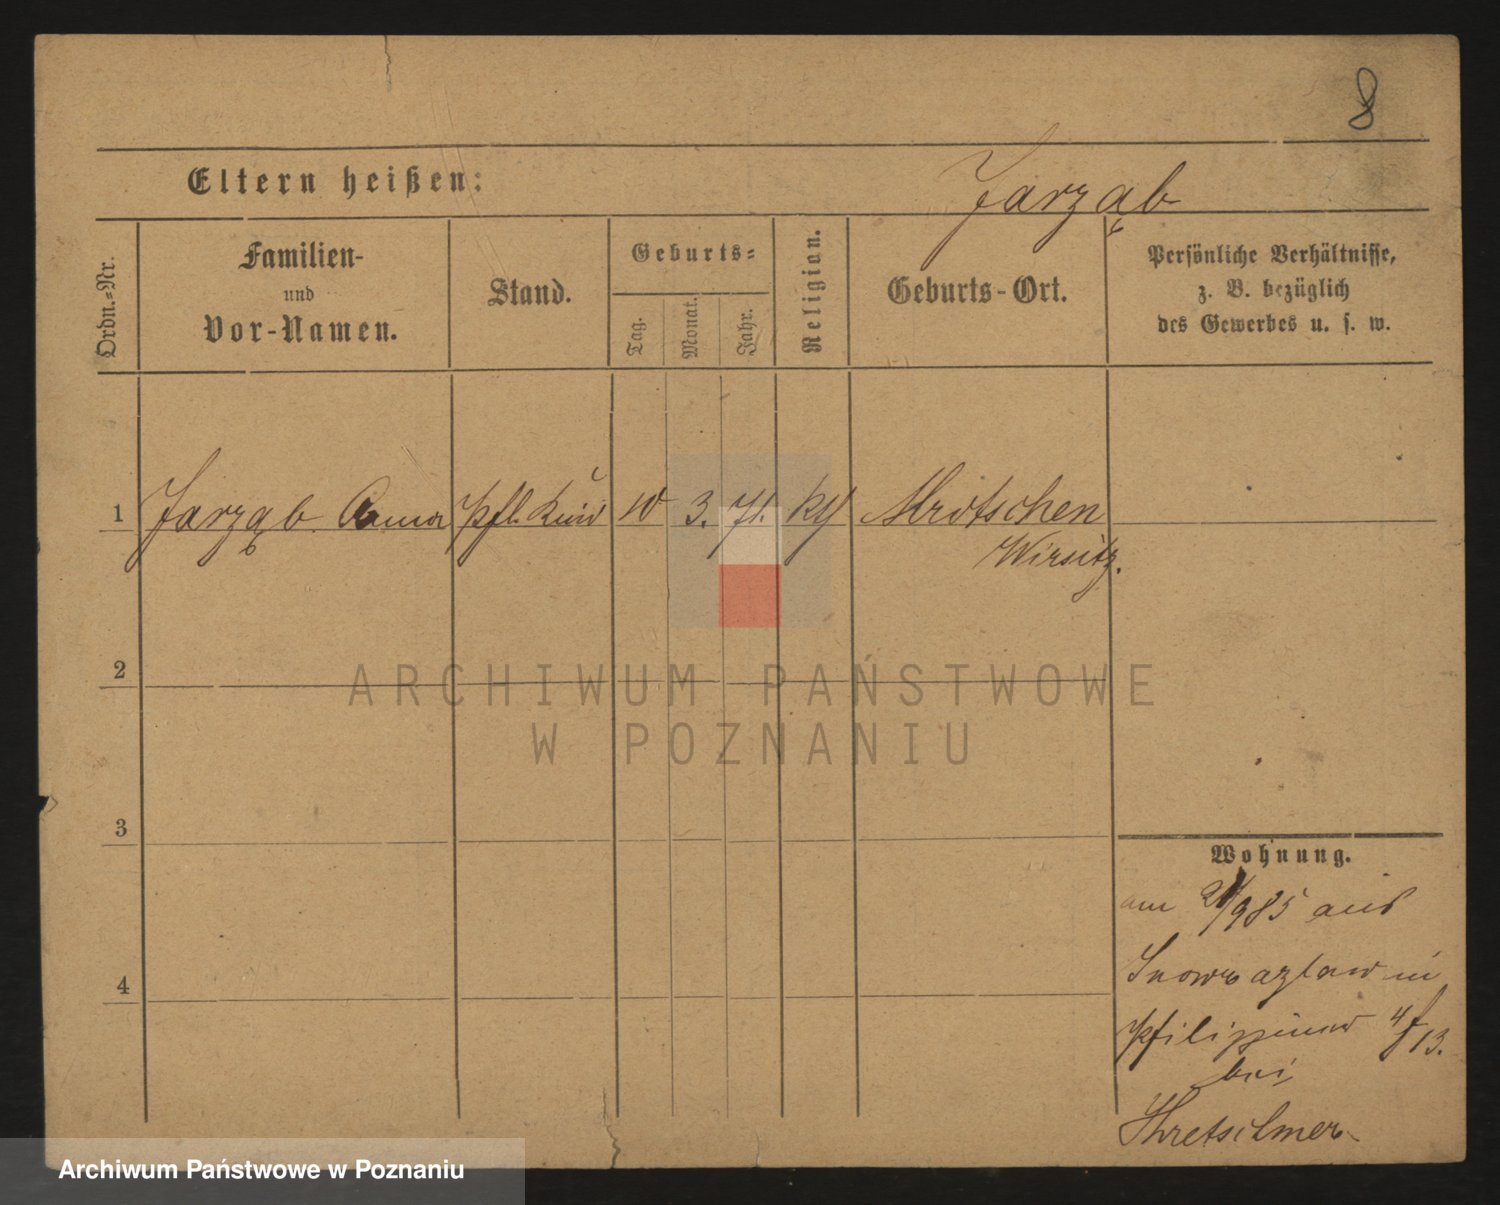 8
Eltern heißen:
Jarząb
Ordn.=Nr.
Familien-
und
Vor-Namen.
Stand.
Geburts=
Tag.
Monat.
Jahr.
Religion.
Geburts-Ort.
Persönliche Verhältnisse,
z. B. bezüglich
des Gewerbes u. s. w.
1 Jarząb Anna Pfl. Kind 10 3. 71. Mrotschen
Wirsitz.
2
ARCHIWUM PAŃSTWOWE
W POZNANIU
3
4
Wohnung.
am aus
Inowrazlaw in
4/13.
bei
Kretschmer
Archiwum Państwowe w Poznaniu